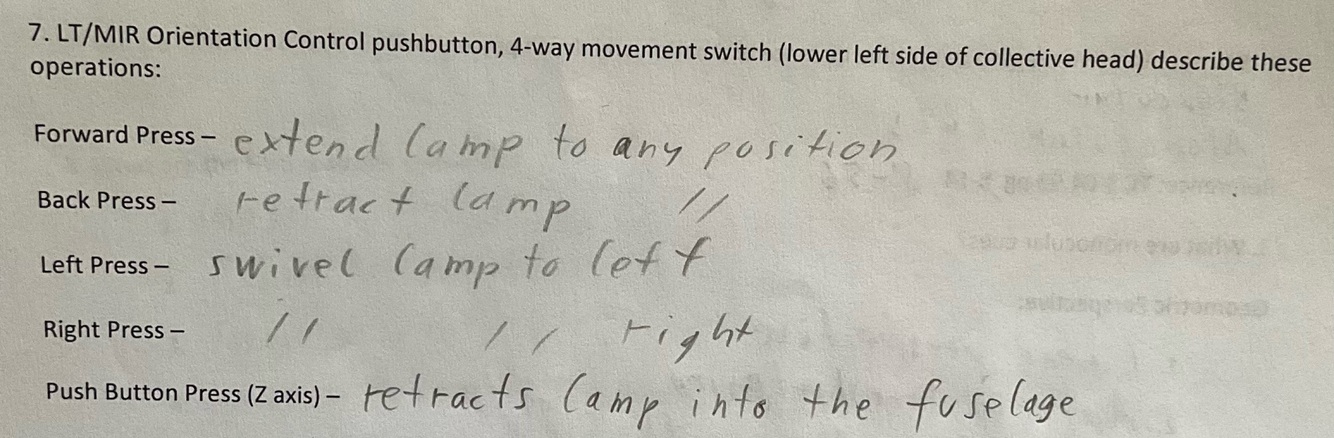 7. LT/MIR Orientation Control pushbutton, 4-way movement switch (lower left side of collective head) describe these
operations:
Forward Press – extend lamp to any position
Back Press – retract lamp //
Left Press – swivel lamp to left
Right Press – // // right
Push Button Press (Z axis) – retracts lamp into the fuselage